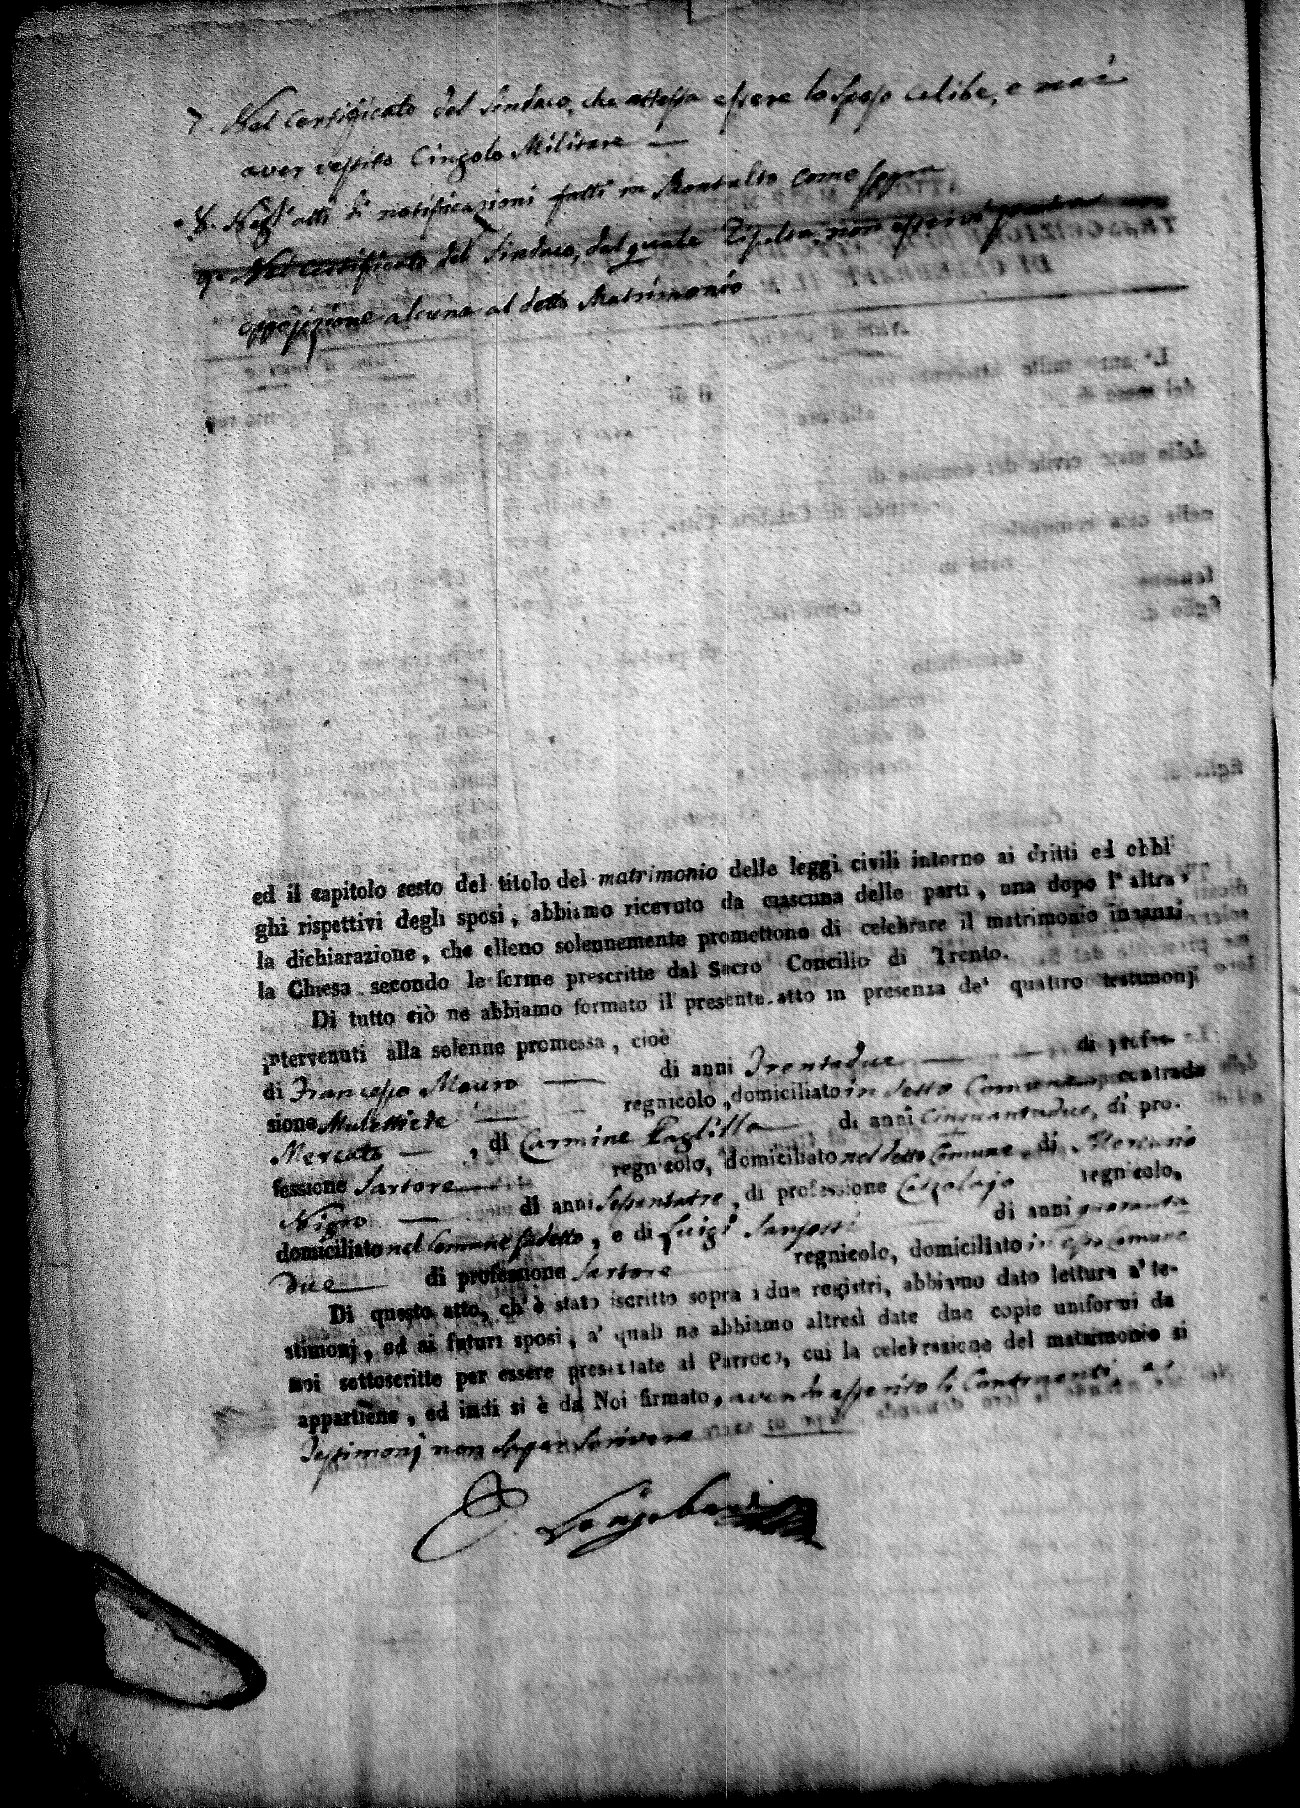 7. Nel Certificato del Sindaco, che attessa essere lo sposo celibe, e mai
aver vestito Cingolo Militare
8. Negl' atti di notificazioni fatti in Montalto come sopra
9. Nel certificato del Sindaco, dal quale non esservi
opposizione alcuna al detto Matrimonio
ed il capitolo sesto del titolo del matrimonio delle leggi civili intorno ai dritti ed obbl
ghi rispettivi degli sposi, abbiamo ricevuto da ciascuna delle parti, una dopo l'altra,
la dichiarazione, che elleno solennemente promettono di celebrare il matrimonio innanzi
la Chiesa secondo le forme prescritte dal Sacro Concilio di Trento.
Di tutto ciò ne abbiamo formato il presente atto in presenza de' quattro testimonj
intervenuti alla solenne promessa, cioè
di Francesso Mauro di anni Trentadue di profes
sione Mulettiere regnicolo, domiciliato in detto Comune contrada
Mercato, di Carmine Paglilla di anni Cinquantadue, di pro.
fessione Sartore regnicolo, domiciliato nel detto Comune, di Mercurio
Nigro di anni Sessantatre, di professione Calzolajo regnicolo,
domiciliato nel Comune sudetto, e di Luigi di anni quaranta
due di professione Sartore regnicolo, domiciliato in esso Comune
Di questo atto, ch' è stato iscritto sopra i due registri, abbiamo dato lettura a' te-
stimonj, ed ai futuri sposi, a' quali ne abbiamo altresì date due copie uniformi da
noi sottoscritte per essere presentate al Parroco, cui la celebrazione del matrimonio si
appartiene, ed indi si è da Noi firmato, avendo asserito li Contraenti, e
Testimonj non saper scrivere